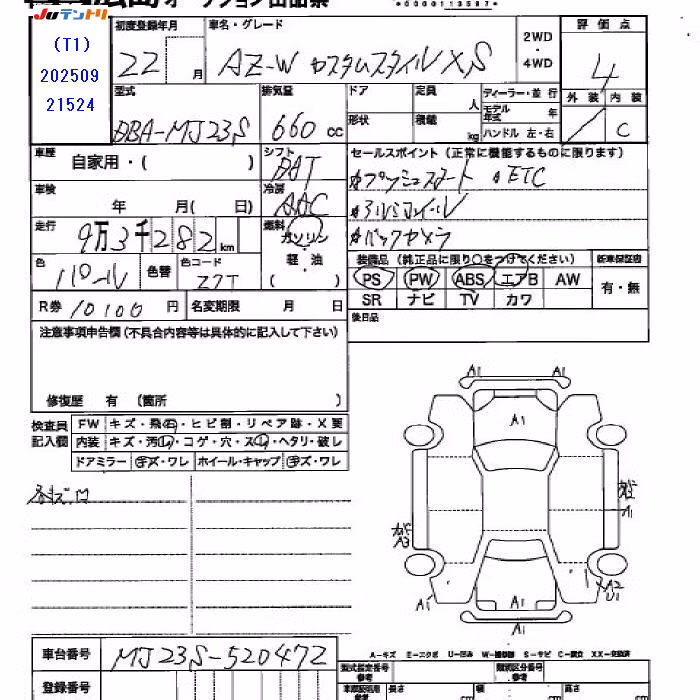 オークション出品票
*0000113597*
Juテントリ
(T1)
202509
21524
初度登録年月 22 月
車名・グレード AZ-W カスタムスタイルXS
2WD・4WD
評価点 4
外装 内装 C
型式 DBA-MJ23S
排気量 660 cc
ドア 定員 人
形状 積載 kg
ディーラー・並行
モデル年式 年
ハンドル 左・右
車歴 自家用・( )
シフト DAT
セールスポイント (正常に機能するものに限ります)
#プッシュスタート #ETC
#アルミホイール
#バックカメラ
車検 年 月( 日)
冷房 AAC
走行 9万3千282km
燃料 ガソリン・軽・油( )
色 パール 色替 色コード Z7T
装備品 (純正品に限り○をつけてください)
新車保証書 有・無
PS PW ABS エアB AW
SR ナビ TV カワ
R券 10100 円 名変期限 月 日
後日品
注意事項申告欄 (不具合内容等は具体的に記入して下さい)
修復歴 有 (箇所 )
検査員記入欄
FW キズ・飛石・ヒビ割・リペア跡・X要
内装 キズ・汚レ・コゲ・穴・スレ・ヘタリ・破レ
ドアミラー キズ・ワレ ホイール・キャップ キズ・ワレ
A1
A1
A1
A3
A1
A2
U1
A1
A1
A1
車台番号 MJ23S-520472
A-キズ E-エクボ U-凹み W-補修跡 S-サビ C-腐食 XX-交換済
登録番号
型式指定番号 参考
類別区分番号 参考
車検証記載 参考 長さ cm 幅 cm 高さ cm